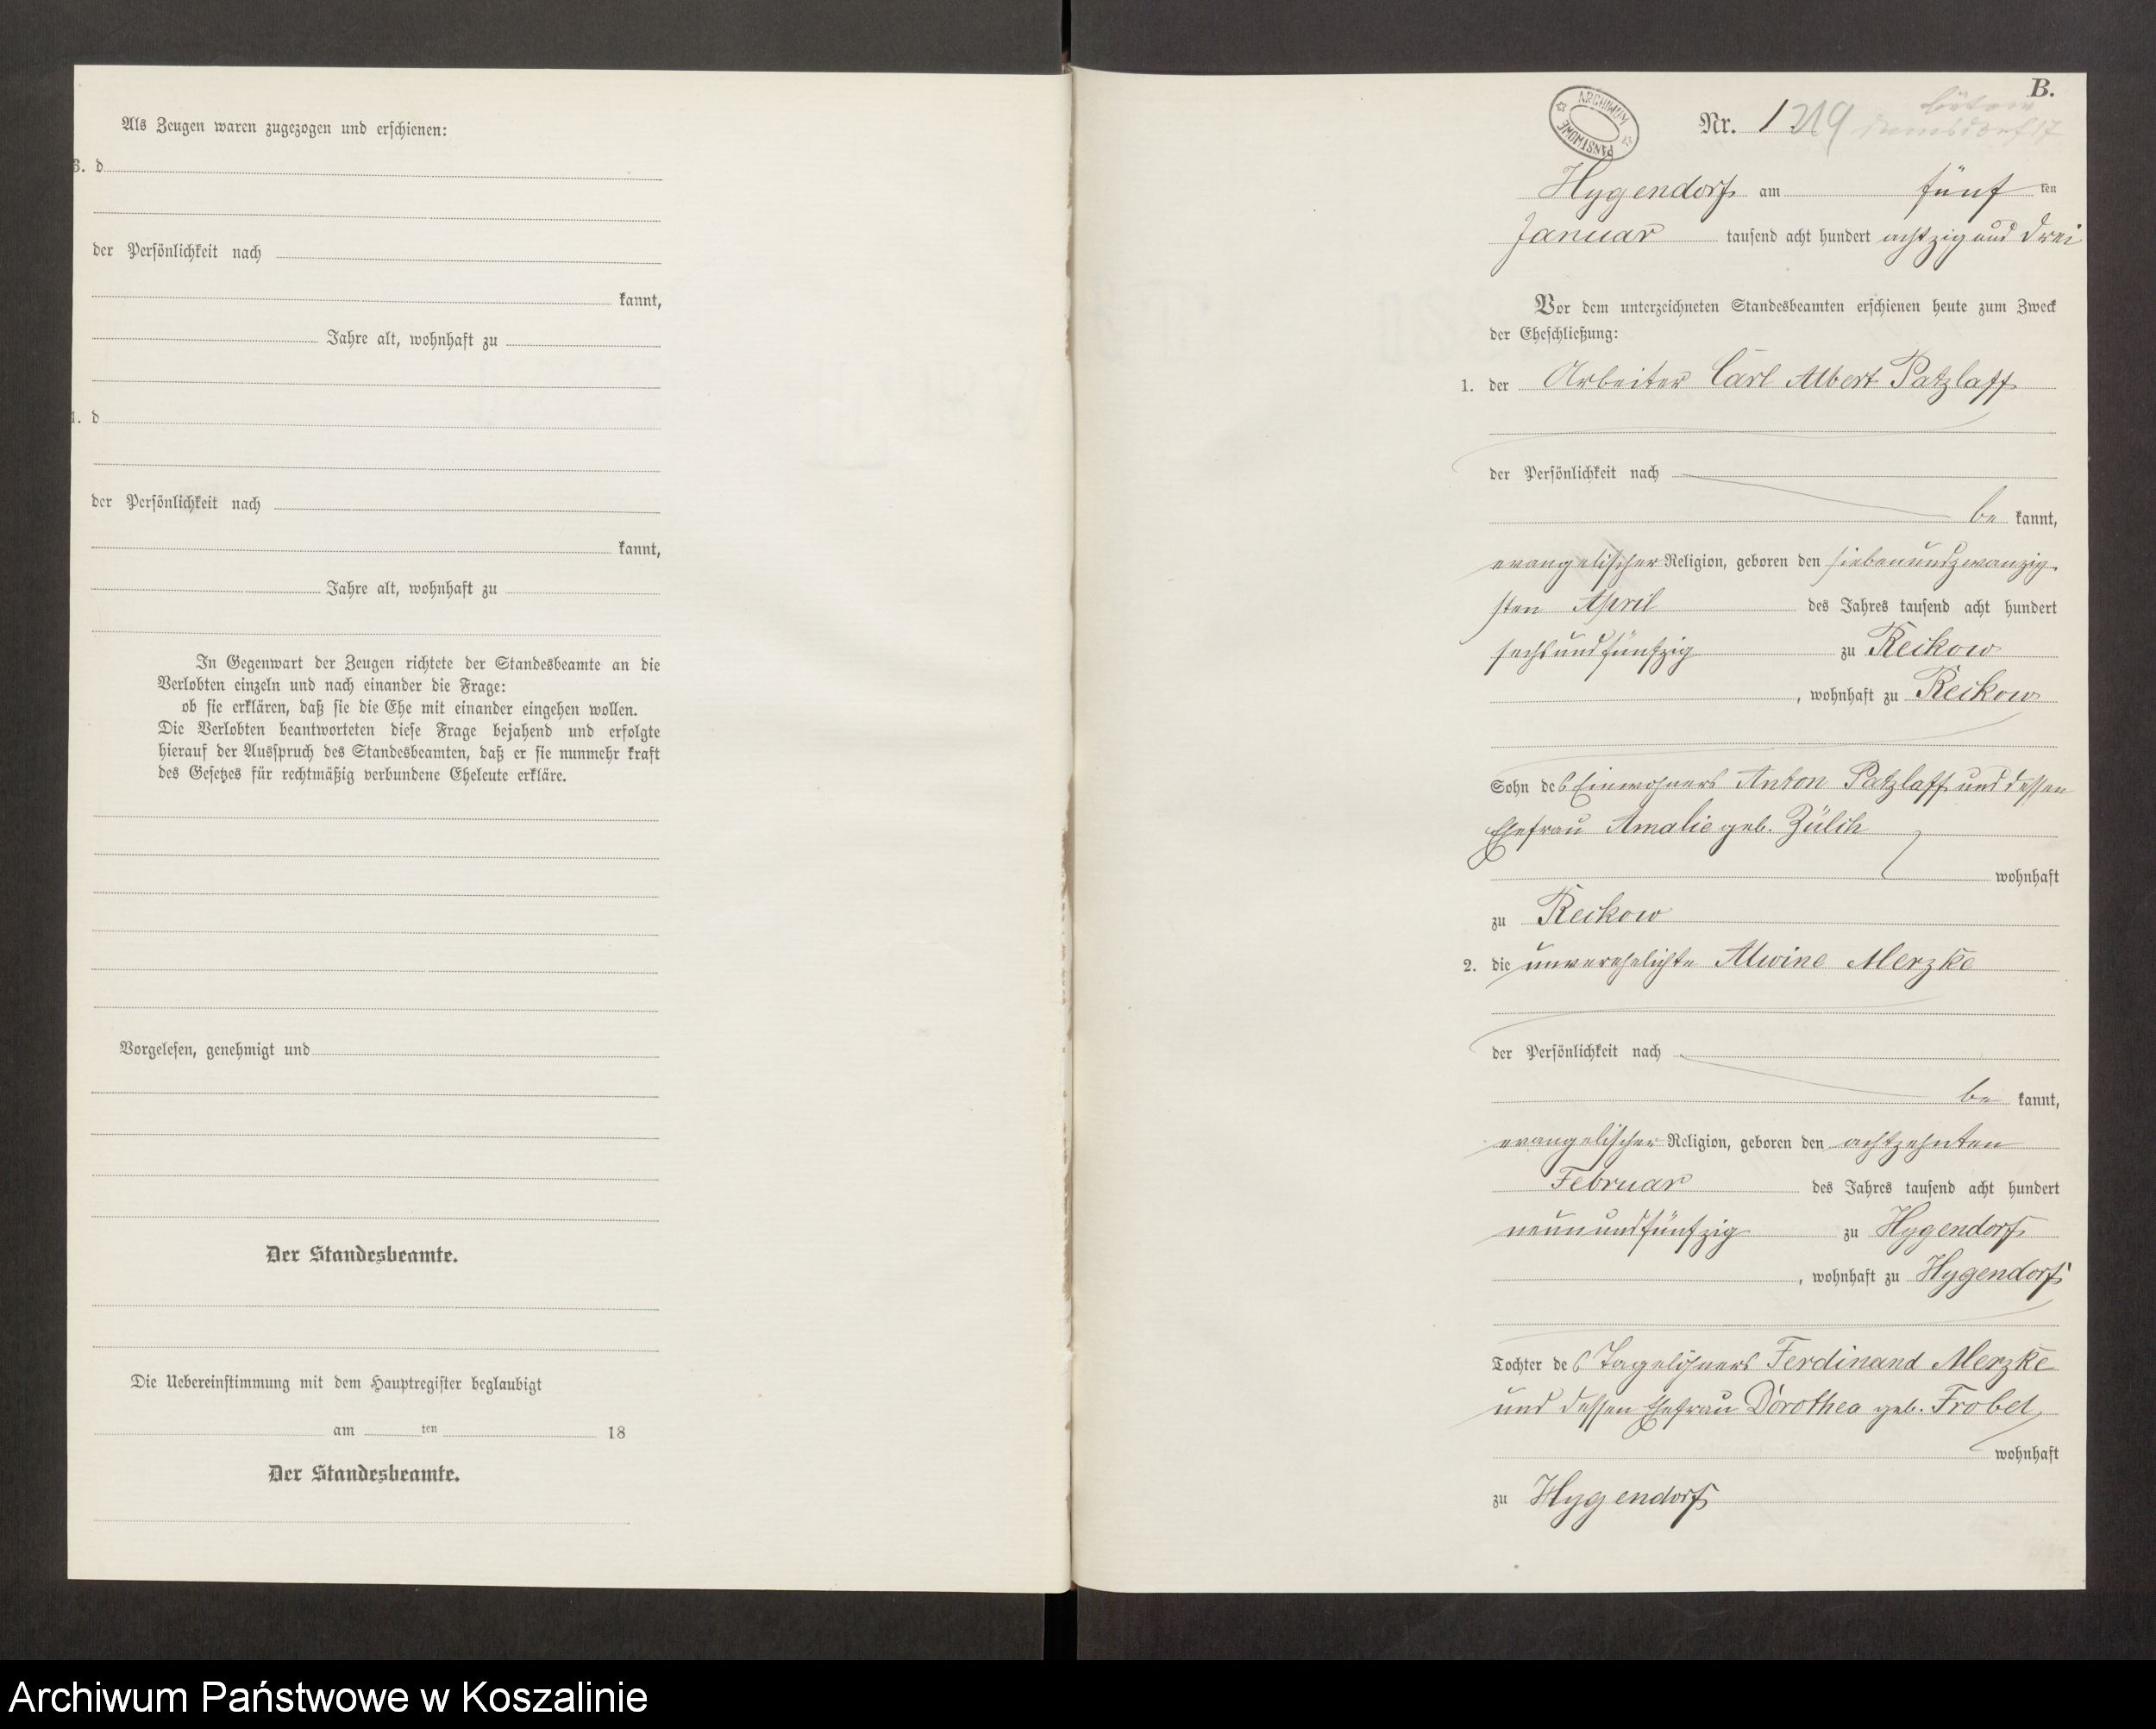 Als Zeugen waren zugezogen und erschienen:
3. d
der Persönlichkeit nach
kannt,
Jahre alt, wohnhaft zu
4. d
der Persönlichkeit nach
kannt,
Jahre alt, wohnhaft zu
In Gegenwart der Zeugen richtete der Standesbeamte an die
Verlobten einzeln und nach einander die Frage:
ob sie erklären, daß sie die Ehe mit einander eingehen wollen.
Die Verlobten beantworteten diese Frage bejahend und erfolgte
hierauf der Ausspruch des Standesbeamten, daß er sie nunmehr kraft
des Gesetzes für rechtmäßig verbundene Eheleute erkläre.
Vorgelesen, genehmigt und
Der Standesbeamte.
Die Uebereinstimmung mit dem Hauptregister beglaubigt
am ten 18
Der Standesbeamte.
B.
ARCHIWUM PAŃSTWOWE
Nr. 1 219
Hygendorf am fünf ten
Januar tausend acht hundert achtzig und drei
Vor dem unterzeichneten Standesbeamten erschienen heute zum Zweck
der Eheschließung:
1. der Arbeiter Carl Albert Patzlaff
der Persönlichkeit nach
be kannt,
evangelischer Religion, geboren den siebenundzwanzig-
sten April des Jahres tausend acht hundert
sechsundfünfzig zu Reckow
, wohnhaft zu Reckow
Sohn des Einwohners Anton Patzlaff und dessen
Ehefrau Amalie geb. Zülch
wohnhaft
zu Reckow
2. die unverehelichte Alwine Merzke
der Persönlichkeit nach
be kannt,
evangelischer Religion, geboren den achtzehnten
Februar des Jahres tausend acht hundert
neunundfünfzig zu Hygendorf
, wohnhaft zu Hygendorf
Tochter des Tagelöhners Ferdinand Merzke
und dessen Ehefrau Dorothea geb. Frobel
wohnhaft
zu Hygendorf
Archiwum Państwowe w Koszalinie